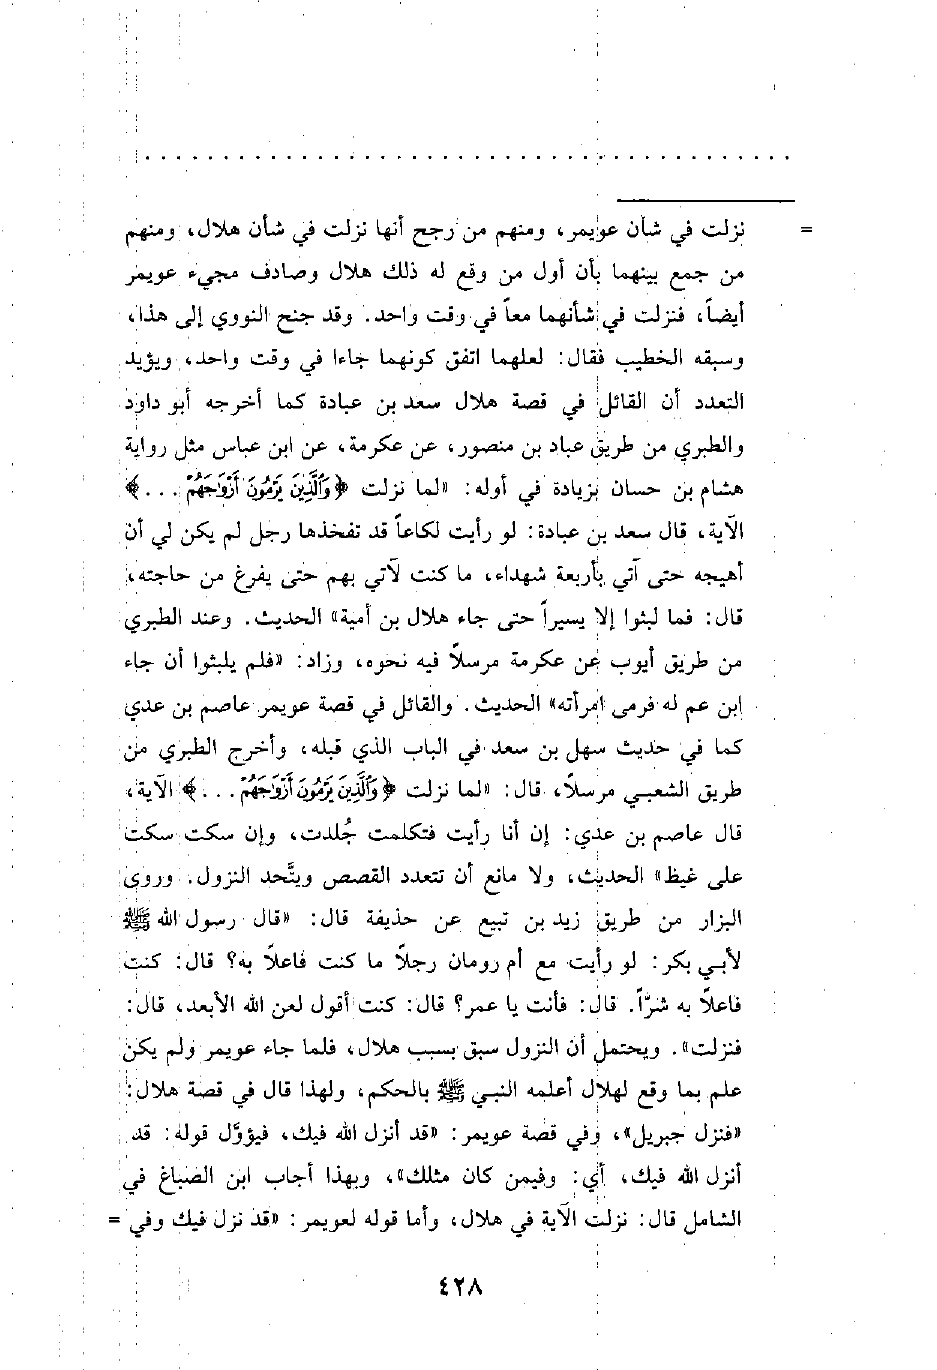 = نزلت في شأن عويمر، ومنهم من رجح أنها نزلت في شأن هلال، ومنهم
من جمع بينهما بأن أول من وقع له ذلك هلال وصادف مجيء عويمر
أيضاً، فنزلت في شأنهما معاً في وقت واحد. وقد جنح النووي إلى هذا،
وسبقه الخطيب فقال: لعلهما اتفق كونهما جاءا في وقت واحد، ويؤيد
التعدد أن القائل في قصة هلال سعد بن عبادة كما أخرجه أبو داود
والطبري من طريق عباد بن منصور، عن عكرمة، عن ابن عباس مثل رواية
هشام بن حسان بزيادة في أوله: «لما نزلت ﴿وَٱلَّذِينَ يَرْمُونَ أَزْوَٰجَهُمْ ...﴾
الآية، قال سعد بن عبادة: لو رأيت لكاعاً قد تفخذها رجل لم يكن لي أن
أهيجه حتى آتي بأربعة شهداء، ما كنت لآتي بهم حتى يفرغ من حاجته،
قال: فما لبثوا إلا يسيراً حتى جاء هلال بن أمية» الحديث. وعند الطبري
من طريق أيوب عن عكرمة مرسلاً فيه نحوه، وزاد: «فلم يلبثوا أن جاء
ابن عم له فرمى امرأته» الحديث. والقائل في قصة عويمر عاصم بن عدي
كما في حديث سهل بن سعد في الباب الذي قبله، وأخرج الطبري من
طريق الشعبي مرسلاً، قال: «لما نزلت ﴿وَٱلَّذِينَ يَرْمُونَ أَزْوَٰجَهُمْ ...﴾ الآية،
قال عاصم بن عدي: إن أنا رأيت فتكلمت جُلدت، وإن سكت سكت
على غيظ» الحديث، ولا مانع أن تتعدد القصص ويتَّحد النزول. وروى
البزار من طريق زيد بن تبيع عن حذيفة قال: «قال رسول الله ﷺ
لأبي بكر: لو رأيت مع أم رومان رجلاً ما كنت فاعلاً به؟ قال: كنت
فاعلاً به شرّاً. قال: فأنت يا عمر؟ قال: كنت أقول لعن الله الأبعد، قال:
فنزلت». ويحتمل أن النزول سبق بسبب هلال، فلما جاء عويمر ولم يكن
علم بما وقع لهلال أعلمه النبي ﷺ بالحكم، ولهذا قال في قصة هلال:
«فنزل جبريل»، وفي قصة عويمر: «قد أنزل الله فيك، فيؤوَّل قوله: قد
أنزل الله فيك، أي: وفيمن كان مثلك»، وبهذا أجاب ابن الصباغ في
الشامل قال: نزلت الآية في هلال، وأما قوله لعويمر: «قد نزل فيك وفي =
٤٢٨